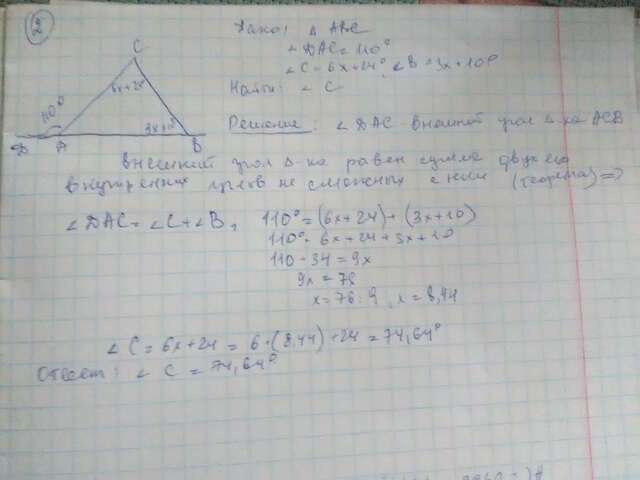 2
Дано: Δ ABC
∠DAC = 110°
∠C = 6x+24°, ∠B = 3x+10°
Найти: ∠ C
C
6x+24°
110°
3x+10°
D A B
Решение: ∠ DAC - внешний угол Δ-ка ACB
Внешний угол Δ-ка равен сумме двух его
внутренних углов не смежных с ним (теорема) =>
∠DAC = ∠C + ∠B, 110° = (6x+24) + (3x+10)
110° = 6x+24+3x+10
110 - 34 = 9x
9x = 76
x = 76 : 9, x = 8,44
∠ C = 6x+24 = 6·(8,44)+24 = 74,64°
Ответ: ∠ C = 74,64°